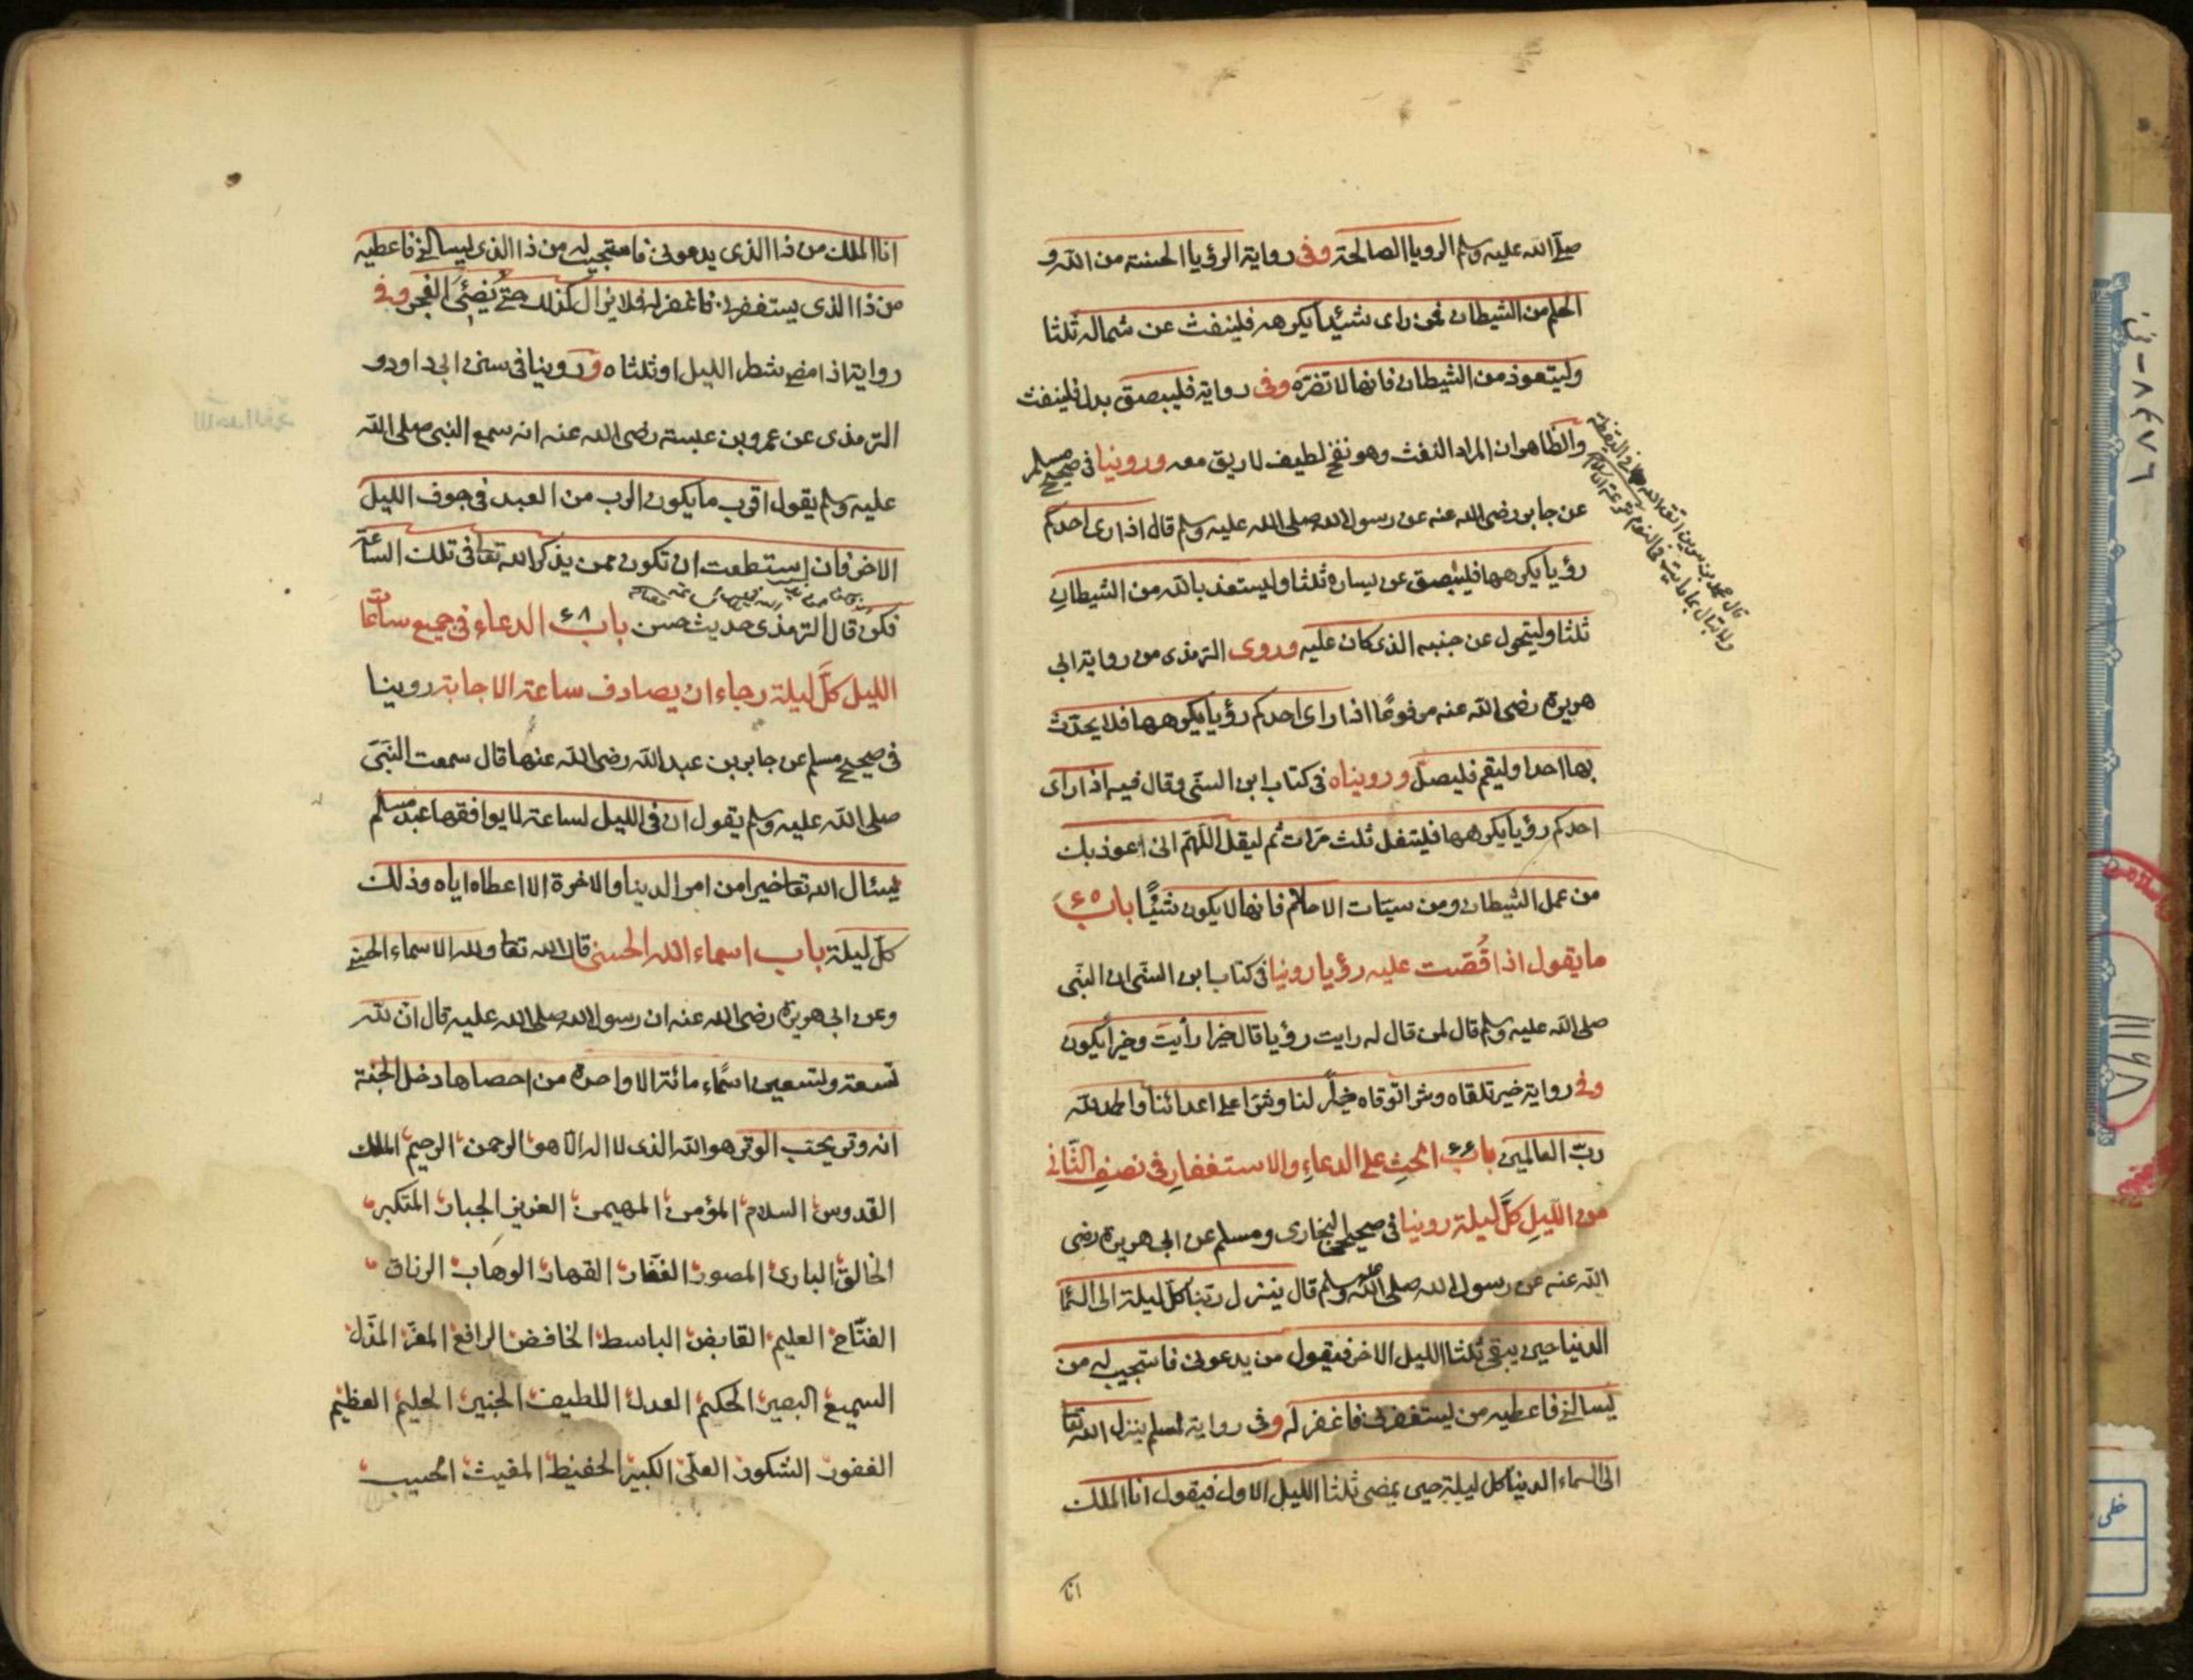 صلى الله عليه وسلم الرويا الصالحة وفي رواية الرؤيا الحسنة من الله و
الحلم من الشيطان فمن راى شيئا يكرهه فلينفث عن شماله ثلثا
وليتعوذ من الشيطان فانها لا تضره وفى رواية فليبصق بدل فلينفث
والظاهر ان المراد النفث وهو نفخ لطيف لا ريق معه وروينا فى صحيح مسلم
عن جابر رضى الله عنه عن رسول الله صلى الله عليه وسلم قال اذا راى احدكم
رؤيا يكرهها فليبصق عن يساره ثلثا وليستعذ بالله من الشيطان
ثلثا وليتحول عن جنبه الذى كان عليه وروى الترمذى من رواية ابى
هريرة رضى الله عنه مرفوعا اذا راى احدكم رؤيا يكرهها فلا يحدث
بها احدا وليقم فليصل ورويناه فى كتاب ابن السنى وقال فيه اذا راى
احدكم رؤيا يكرهها فليتفل ثلث مرات ثم ليقل اللهم انى اعوذ بك
من عمل الشيطان ومن سيئات الاحلام فانها لا يكون شيئا باب ٤٥
ما يقول اذا قُصّت عليه رؤيا روينا فى كتاب ابن السنى ان النبى
صلى الله عليه وسلم قال لمن قال له رايت رؤيا قال خيرا رأيت وخيرا يكون
وفى رواية خير تلقاه وشرا توقاه خير لنا وشر على اعدائنا والحمد لله
ربّ العالمين باب ٤٦ الحث على الدعاء والاستغفار فى نصف الثّانى
من الليل كلّ ليلة روينا فى صحيحى البخارى ومسلم عن ابى هريرة رضى
الله عنه عن رسول الله صلى الله عليه وسلم قال ينزل ربّنا كلّ ليلة الى السما
الدنيا حين يبقى ثلثا الليل الاخر فيقول من يدعونى فاستجيب له من
يسالنى فاعطيه من يستغفرنى فاغفر له وفى رواية لمسلم ينزل الله تعا
الى السماء الدنيا كل ليلة حين يمضى ثلثا الليل الاول فيقول انا الملك
انا
قال محمد بن سيرين اتق الله فى اليقظة
ولا تبال بما رايت فى النوم
انا الملك من ذا الذى يدعونى فاستجيب له من ذا الذى يسالنى فاعطيه
من ذا الذى يستغفرنى فاغفر له فلا يزال كذلك حتى يضئ الفجر وفى
رواية اذا مضى شطر الليل او ثلثاه وروينا فى سنن ابى داود و
الترمذى عن عمرو بن عبسة رضى الله عنه انه سمع النبى صلى الله
عليه وسلم يقول اقرب ما يكون الرب من العبد فى جوف الليل
الاخر فان استطعت ان تكون ممن يذكر الله تعا فى تلك الساعة
فكن قال الترمذى حديث حسن باب ٤٨ الدعاء فى جميع ساعات
الليل كلّ ليلة رجاء ان يصادف ساعة الاجابة روينا
فى صحيح مسلم عن جابر بن عبد الله رضى الله عنهما قال سمعت النبى
صلى الله عليه وسلم يقول ان فى الليل لساعة لا يوافقها عبد مسلم
يسئال الله تعا خيرا من امر الدنيا والاخرة الا اعطاه اياه وذلك
كلّ ليلة باب اسماء الله الحسنى قال الله تعا ولله الاسماء الحسنى
وعن ابى هريرة رضى الله عنه ان رسول الله صلى الله عليه قال ان لله
تسعة وتسعين اسماء مائة الا واحدة من احصاها دخل الجنة
انه وتر يحب الوتر هو الله الذى لا اله الا هو الرحمن الرحيم الملك
القدوس السلام المؤمن المهيمن العزيز الجبار المتكبر
الخالق البارئ المصور الغفّار القهار الوهاب الرزاق
الفتّاح العليم القابض الباسط الخافض الرافع المعزّ المذلّ
السميع البصير الحكيم العدل اللطيف الخبير الحليم العظيم
الغفور الشكور العلىّ الكبير الحفيظ المقيت الحسيب
٨٤٧٦ - ف
خطى